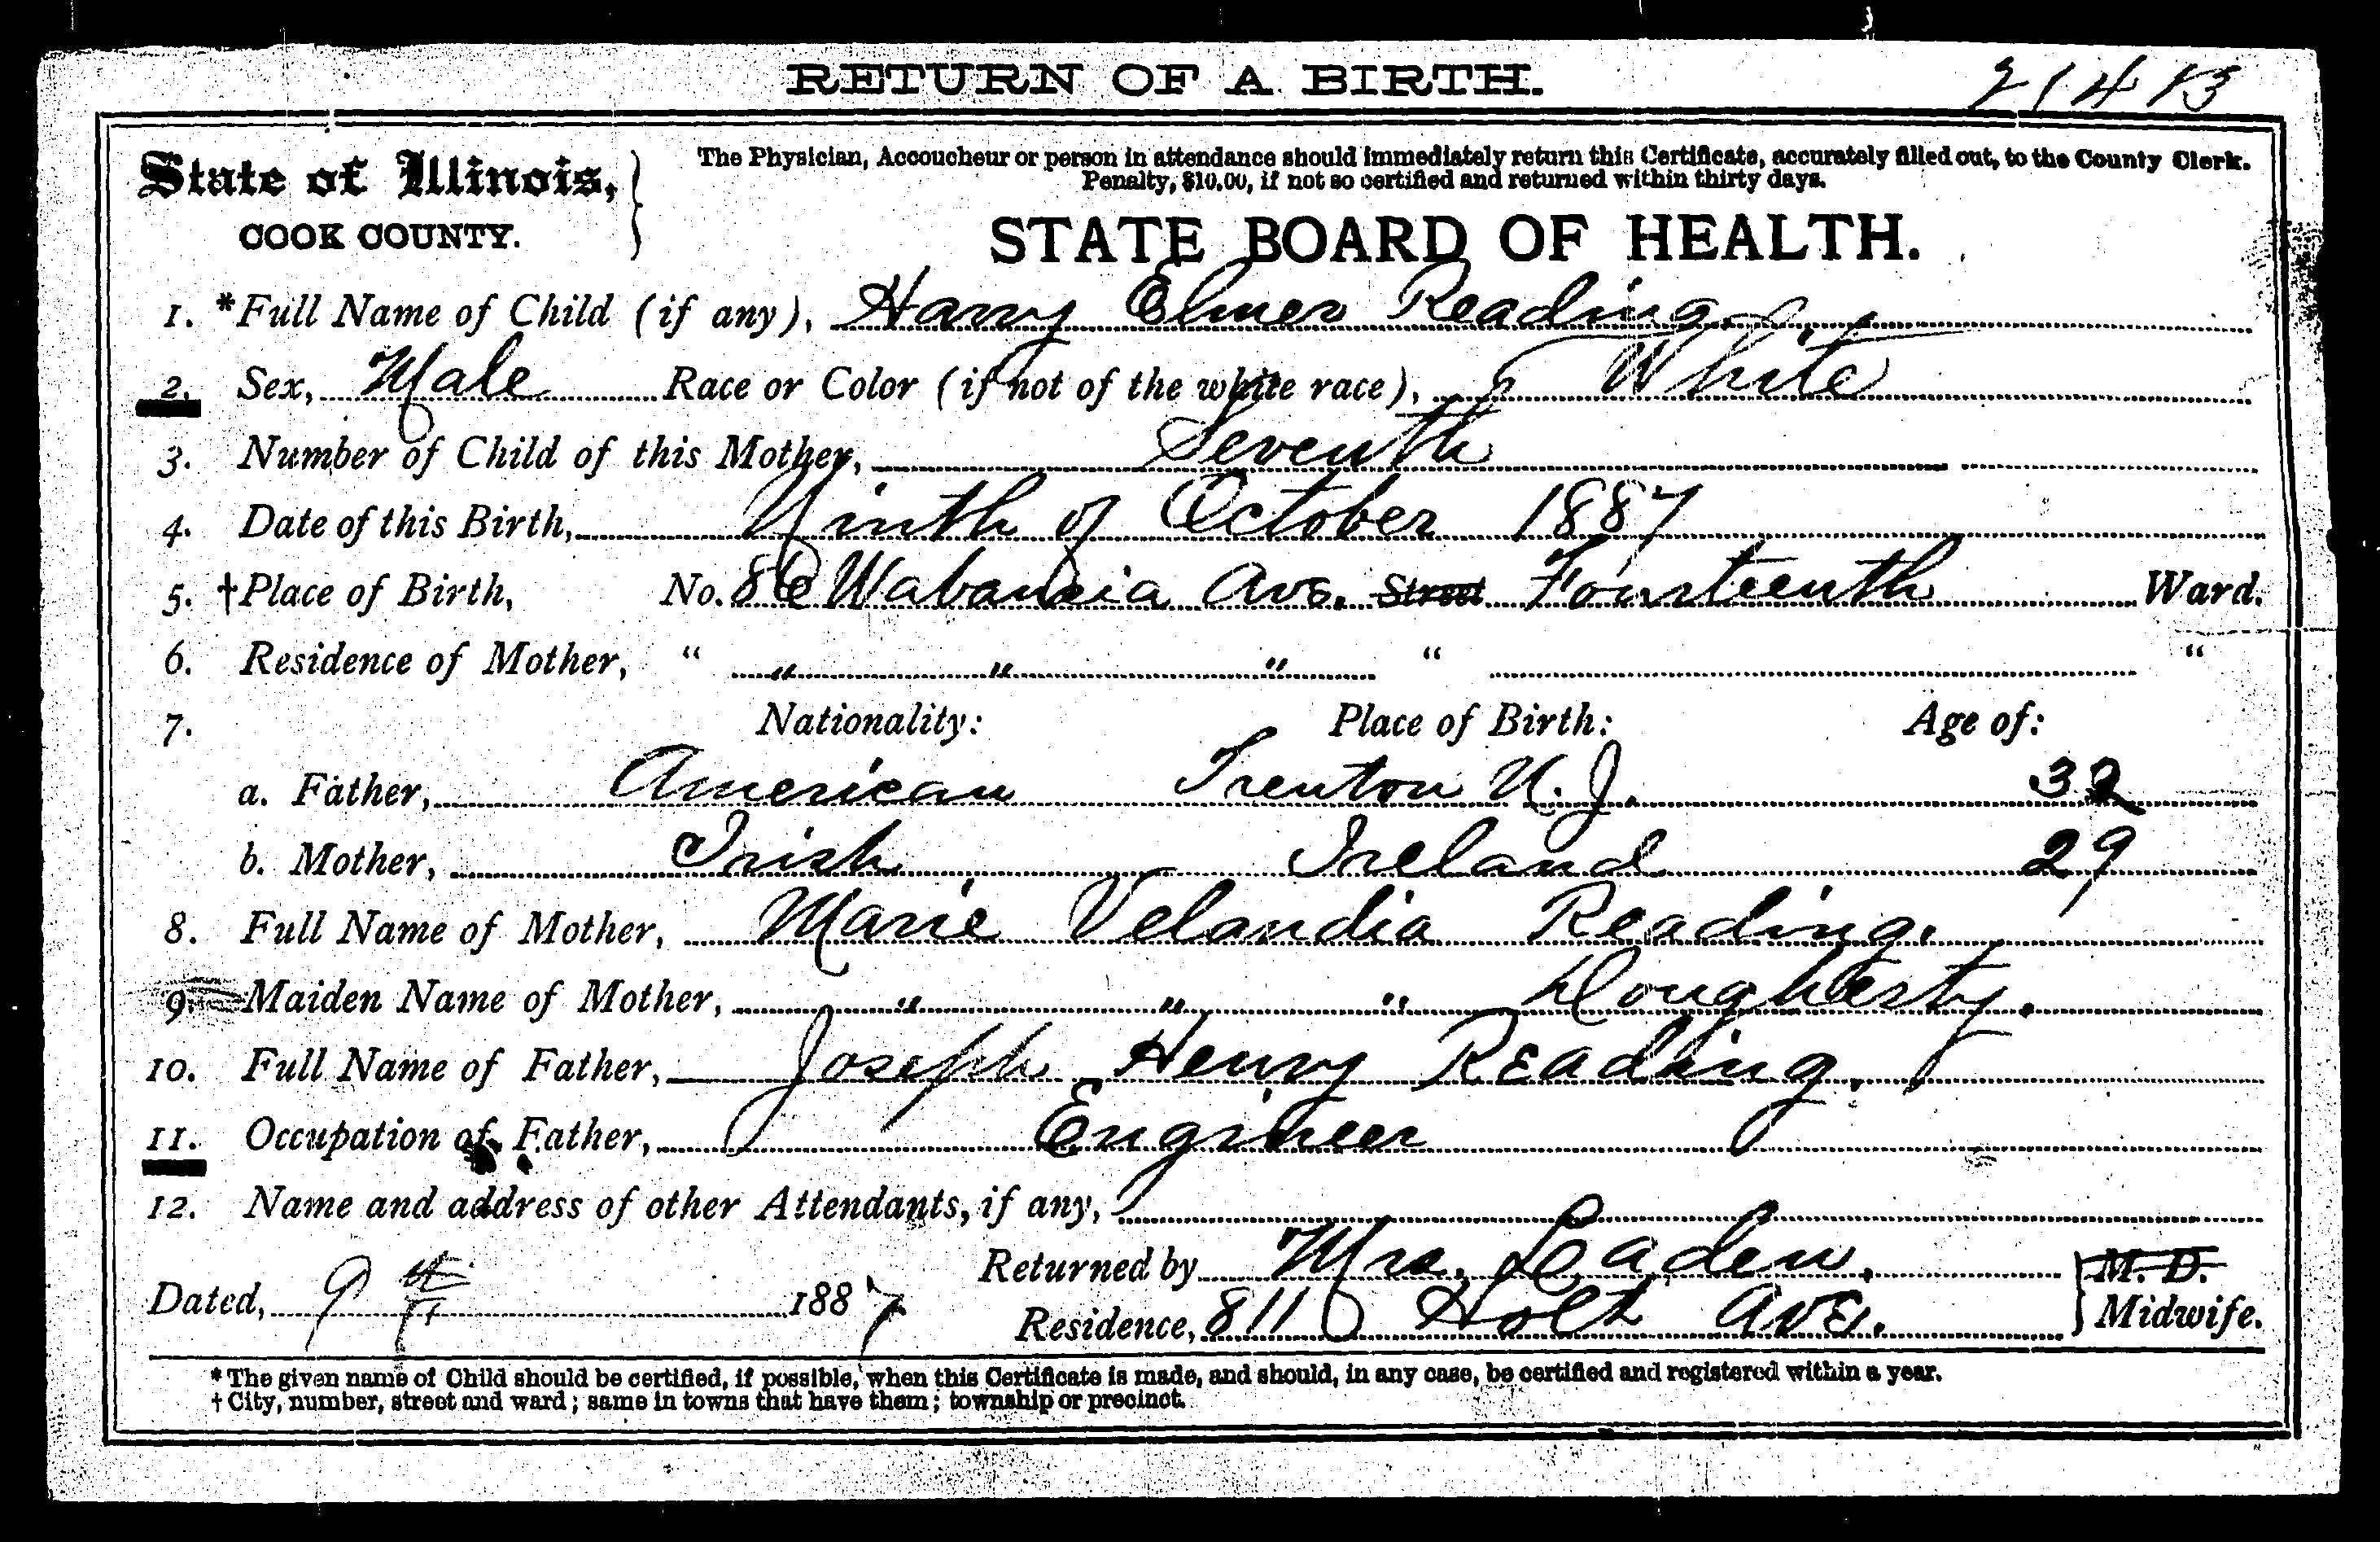 RETURN OF A BIRTH. 21413
State of Illinois,
COOK COUNTY.
The Physician, Accoucheur or person in attendance should immediately return this Certificate, accurately filled out, to the County Clerk.
Penalty, $10,00, if not so certified and returned within thirty days.
STATE BOARD OF HEALTH.
1. *Full Name of Child (if any), Harry Elmer Reading.
2. Sex, Male Race or Color (if not of the white race), White
3. Number of Child of this Mother, Seventh
4. Date of this Birth, Ninth of October 1887
5. †Place of Birth, No. Wabansia Ave. Street Fourteenth Ward.
6. Residence of Mother, " " " " " "
7. Nationality: Place of Birth: Age of:
a. Father, American Trenton N. J. 32
b. Mother, Irish Ireland 29
8. Full Name of Mother, Marie Velandia Reading.
9. Maiden Name of Mother, " " " Dougherty.
10. Full Name of Father, Joseph Henry Reading.
11. Occupation of Father, Engineer
12. Name and address of other Attendants, if any,
Returned by Mrs. Leaden. M. D.
Dated, 9th 1887
Residence, 811 Holt Ave. Midwife.
* The given name of Child should be certified, if possible, when this Certificate is made, and should, in any case, be certified and registered within a year.
† City, number, street and ward; same in towns that have them; township or precinct.